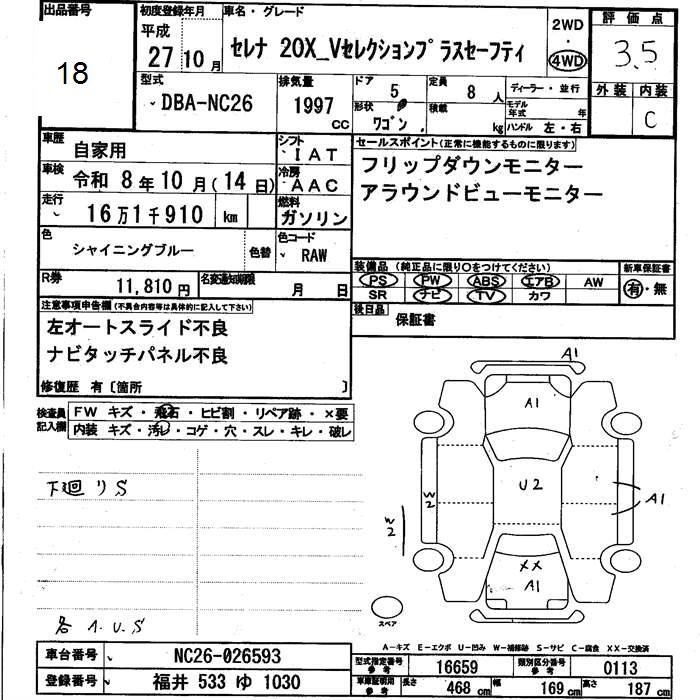 出品番号
18
初度登録年月
平成
27 10月
車名・グレード
セレナ 20X_Vセレクションプラスセーフティ
2WD
・
4WD
評価点
3.5
外装 内装
C
型式
DBA-NC26
排気量
1997
CC
ドア
5
定員
8 人
形状
ワゴン
積載
kg
ディーラー・並行
モデル年式 年
ハンドル 左・右
車歴
自家用
シフト
IAT
車検
令和 8年 10月(14日)
冷房
AAC
走行
16万1千910 km
燃料
ガソリン
色
シャイニングブルー
色替
色コード
RAW
R券
11,810円
名変通知期限
月 日
セールスポイント(正常に機能するものに限ります)
フリップダウンモニター
アラウンドビューモニター
装備品(純正品に限り○をつけてください)
PS PW ABS エアB AW
SR ナビ TV カワ
新車保証書
有・無
後日品
保証書
注意事項申告欄(不具合内容等は具体的に記入して下さい)
左オートスライド不良
ナビタッチパネル不良
修復歴 有〔箇所 〕
検査員記入欄
FW キズ・飛石・ヒビ割・リペア跡・×要
内装 キズ・汚レ・コゲ・穴・スレ・キレ・破レ
下廻りS
各A.U.S
A1
A1
U2
W2
W2
A1
XX
A1
スペア
A-キズ E-エクボ U-凹み W-補修跡 S-サビ C-腐食 XX-交換済
車台番号
NC26-026593
登録番号
福井 533 ゆ 1030
型式指定番号
参考
16659
類別区分番号
参考
0113
車庫証明用
参考
長さ 468 cm
幅 169 cm
高さ 187 cm